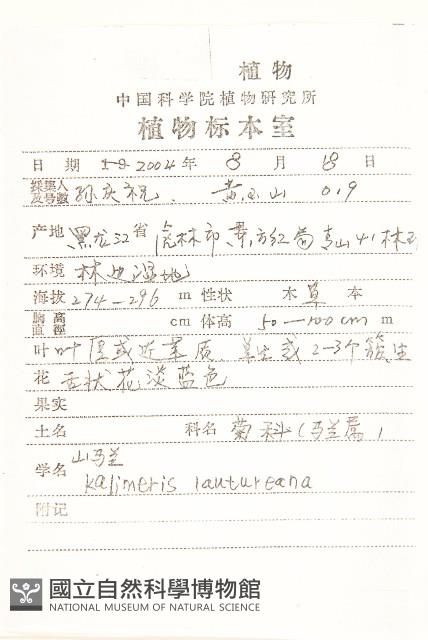 植物
中国科学院植物研究所
植物标本室
日 期 2004 年 8 月 18 日
採集人及号数 孙庆祝、 黄 山 019
产地 黑龙江省 虎林市 东方红 青山 林
环境 林边湿地
海拔 274-296 m 性状 木 草 本
胸高直徑 cm 体高 50-100cm m
叶 叶厚或近革质 单生或2-3个簇生
花 舌状花淡蓝色
果实
土名 科名 菊科(马兰属)
学名 山马兰
kalimeris lautureana
附记
國立自然科學博物館
NATIONAL MUSEUM OF NATURAL SCIENCE